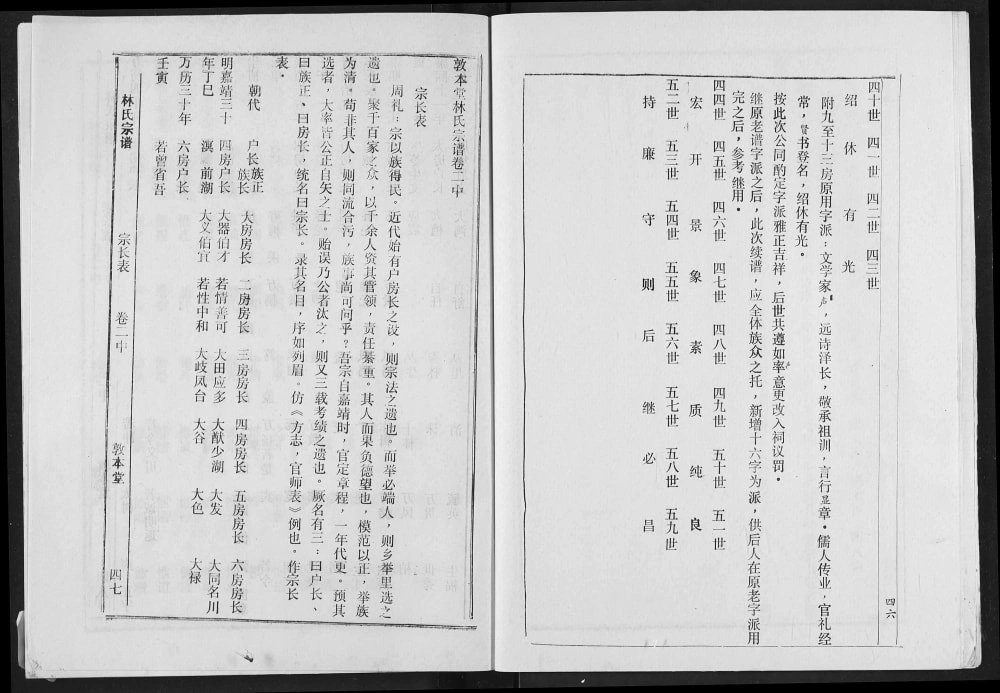 四十世 四一世 四二世 四三世
绍 休 有 光
附九至十三房原用字派:文学家声,远诗泽长,敬承祖训,言行显章·儒人传业,官礼经
常,贤书登名,绍休有光。
按此次公同酌定字派雅正吉祥,后世共遵如率意更改入祠议罚·
继原老谱字派之后,此次续谱,应全体族众之托,新增十六字为派,供后人在原老字派用
完之后,参考继用·
四四世 四五世 四六世 四七世 四八世 四九世 五十世 五一世
宏 开 景 象 素 质 纯 良
五二世 五三世 五四世 五五世 五六世 五七世 五八世 五九世
持 廉 守 则 后 继 必 昌
四六
敦本堂林氏宗谱卷二中
宗长表
周礼:宗以族得民。近代始有户房长之设,则宗法之遗也。而举必端人,则乡举里选之
遗也。聚千百家之众,以千余人资其管领,责任綦重。其人而果负德望也,模范以正,举族
为清。苟非其人,则同流合污,族事尚可问乎?吾宗自嘉靖时,官定章程,一年代更。预其
选者,大率皆公正自矢之士。贻误乃公者汰之,则又三载考绩之遗也。厥名有三:曰户长、
曰族正、曰房长,统名曰宗长。录其名目,序如列眉。仿《方志,官师表》例也。作宗长
表·
朝代 户长族正族长 大房房长 二房房长 三房房长 四房房长 五房房长 六房房长
明嘉靖三十 四房户长 大器伯才 若情善可 大田应多 大猷少湖 大发 大同名川
年丁巳 溟 前湖 大义伯宜 若性中和 大歧风台 大谷 大色 大禄
万历三十年 六房户长
壬寅 若曾省吾
林氏宗谱 宗长表 卷二中 敦本堂 四七